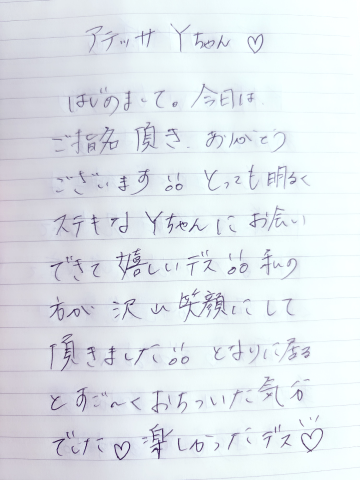 アテッサ Yちゃん♡
はじめまして。今日は
ご指名 頂き、ありがとう
ございます!! とっても明るく
ステキな Yちゃんに お会い
できて 嬉しいデス!! 私の
方が 沢山 笑顔にして
頂きました!! となりに居る
とすご〜くおちついた気分
でした♡楽しかったデス♡